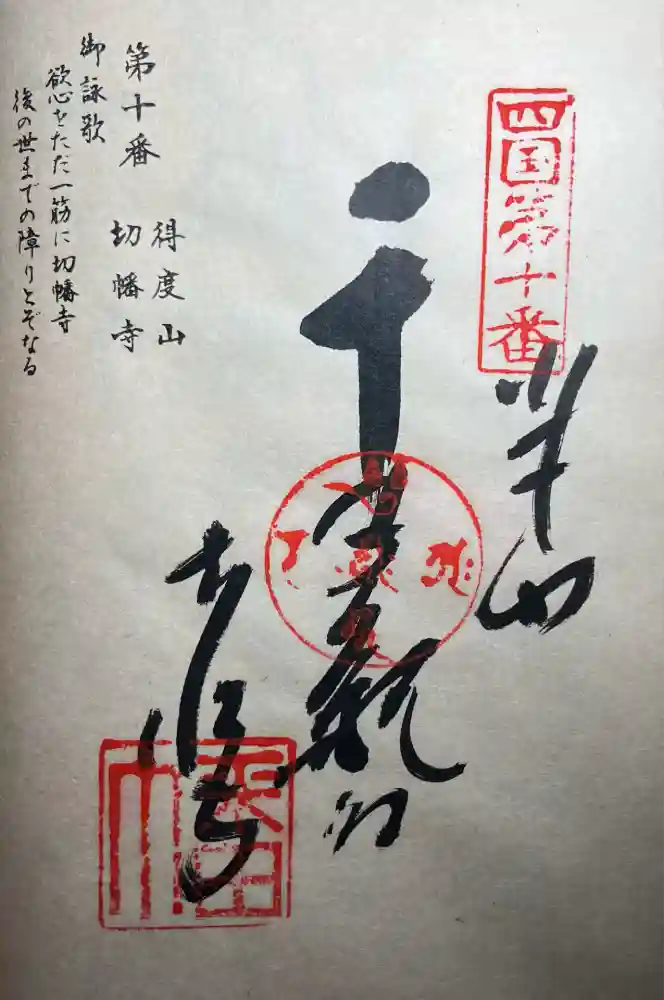 四国第十番
奉納
千手観音
切幡寺
第十番 得度山
切幡寺
御詠歌
欲心をただ一筋に切幡寺
後の世までの障りとぞなる